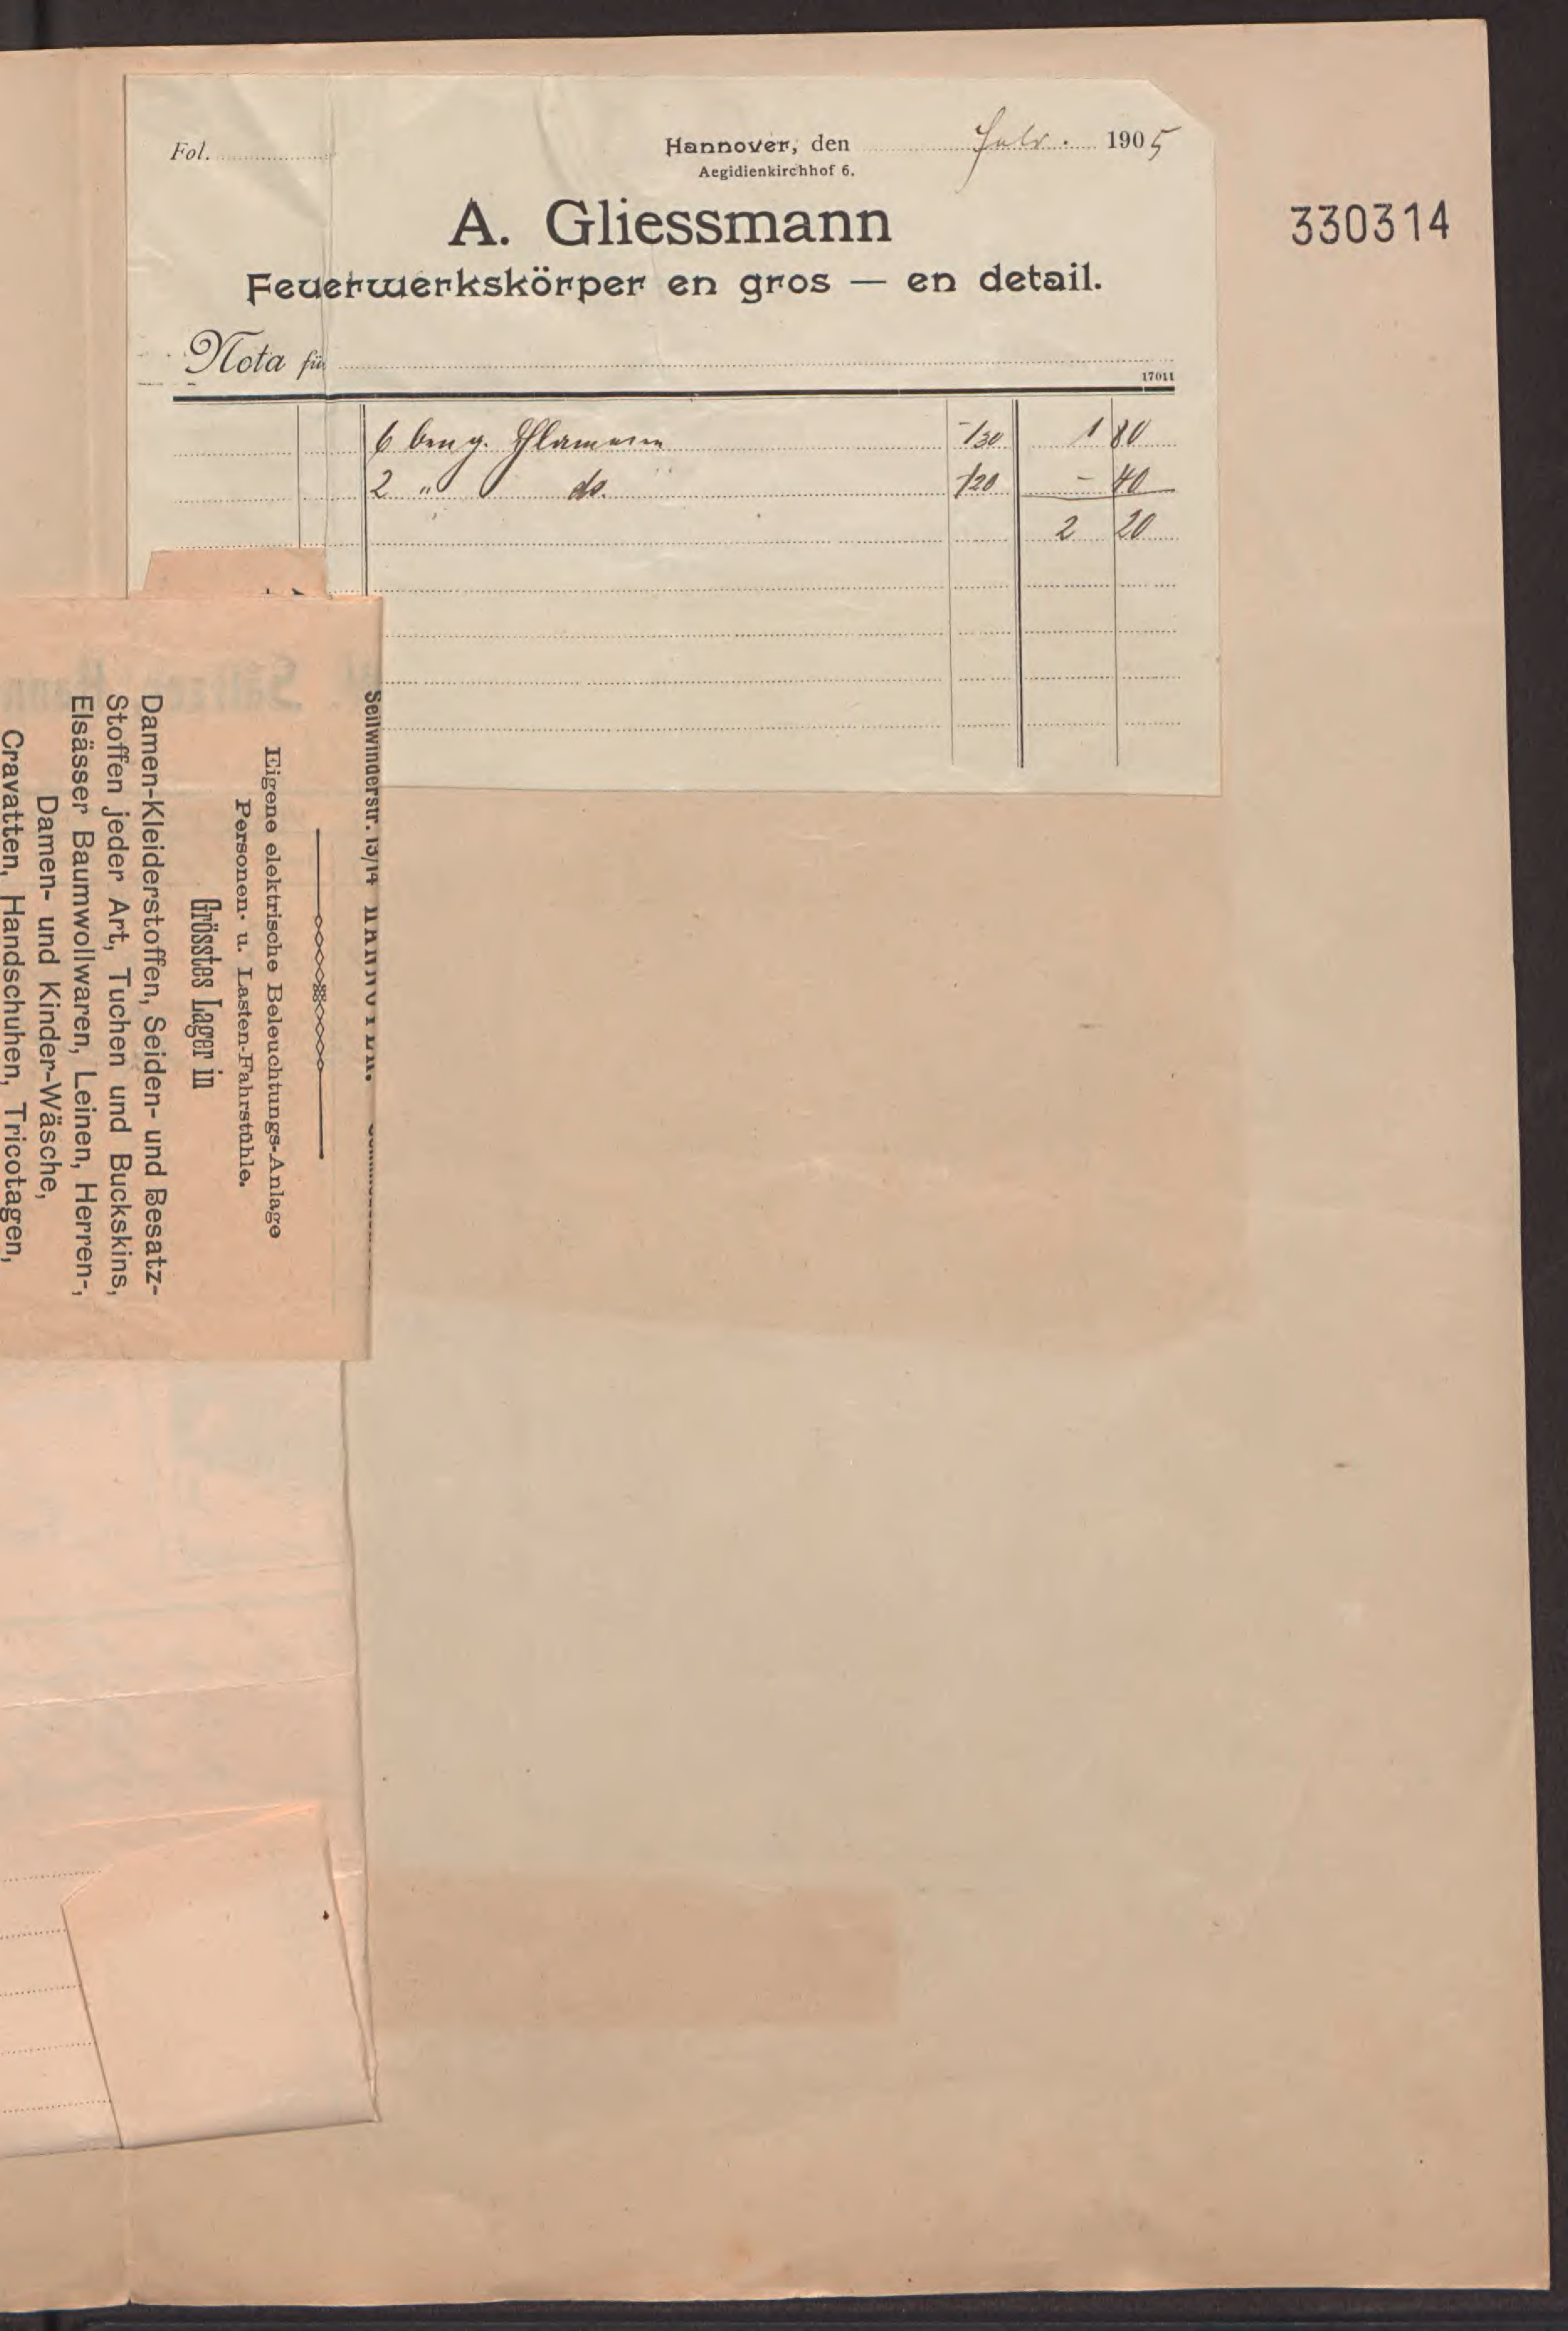 Fol.
Hannover, den Febr. 1905
Aegidienkirchhof 6.
A. Gliessmann
Feuerwerkskörper en gros — en detail.
330314
Nota für
17011
6 beng. Flammen -/30 1 80
2 " do. -/20 - 40
2 20
Seilwinderstr. 13/14 HANNOVER.
Eigene elektrische Beleuchtungs-Anlage
Personen- u. Lasten-Fahrstühle.
Grösstes Lager in
Damen-Kleiderstoffen, Seiden- und Besatz-
Stoffen jeder Art, Tuchen und Buckskins,
Elsässer Baumwollwaren, Leinen, Herren-,
Damen- und Kinder-Wäsche,
Cravatten, Handschuhen, Tricotagen,